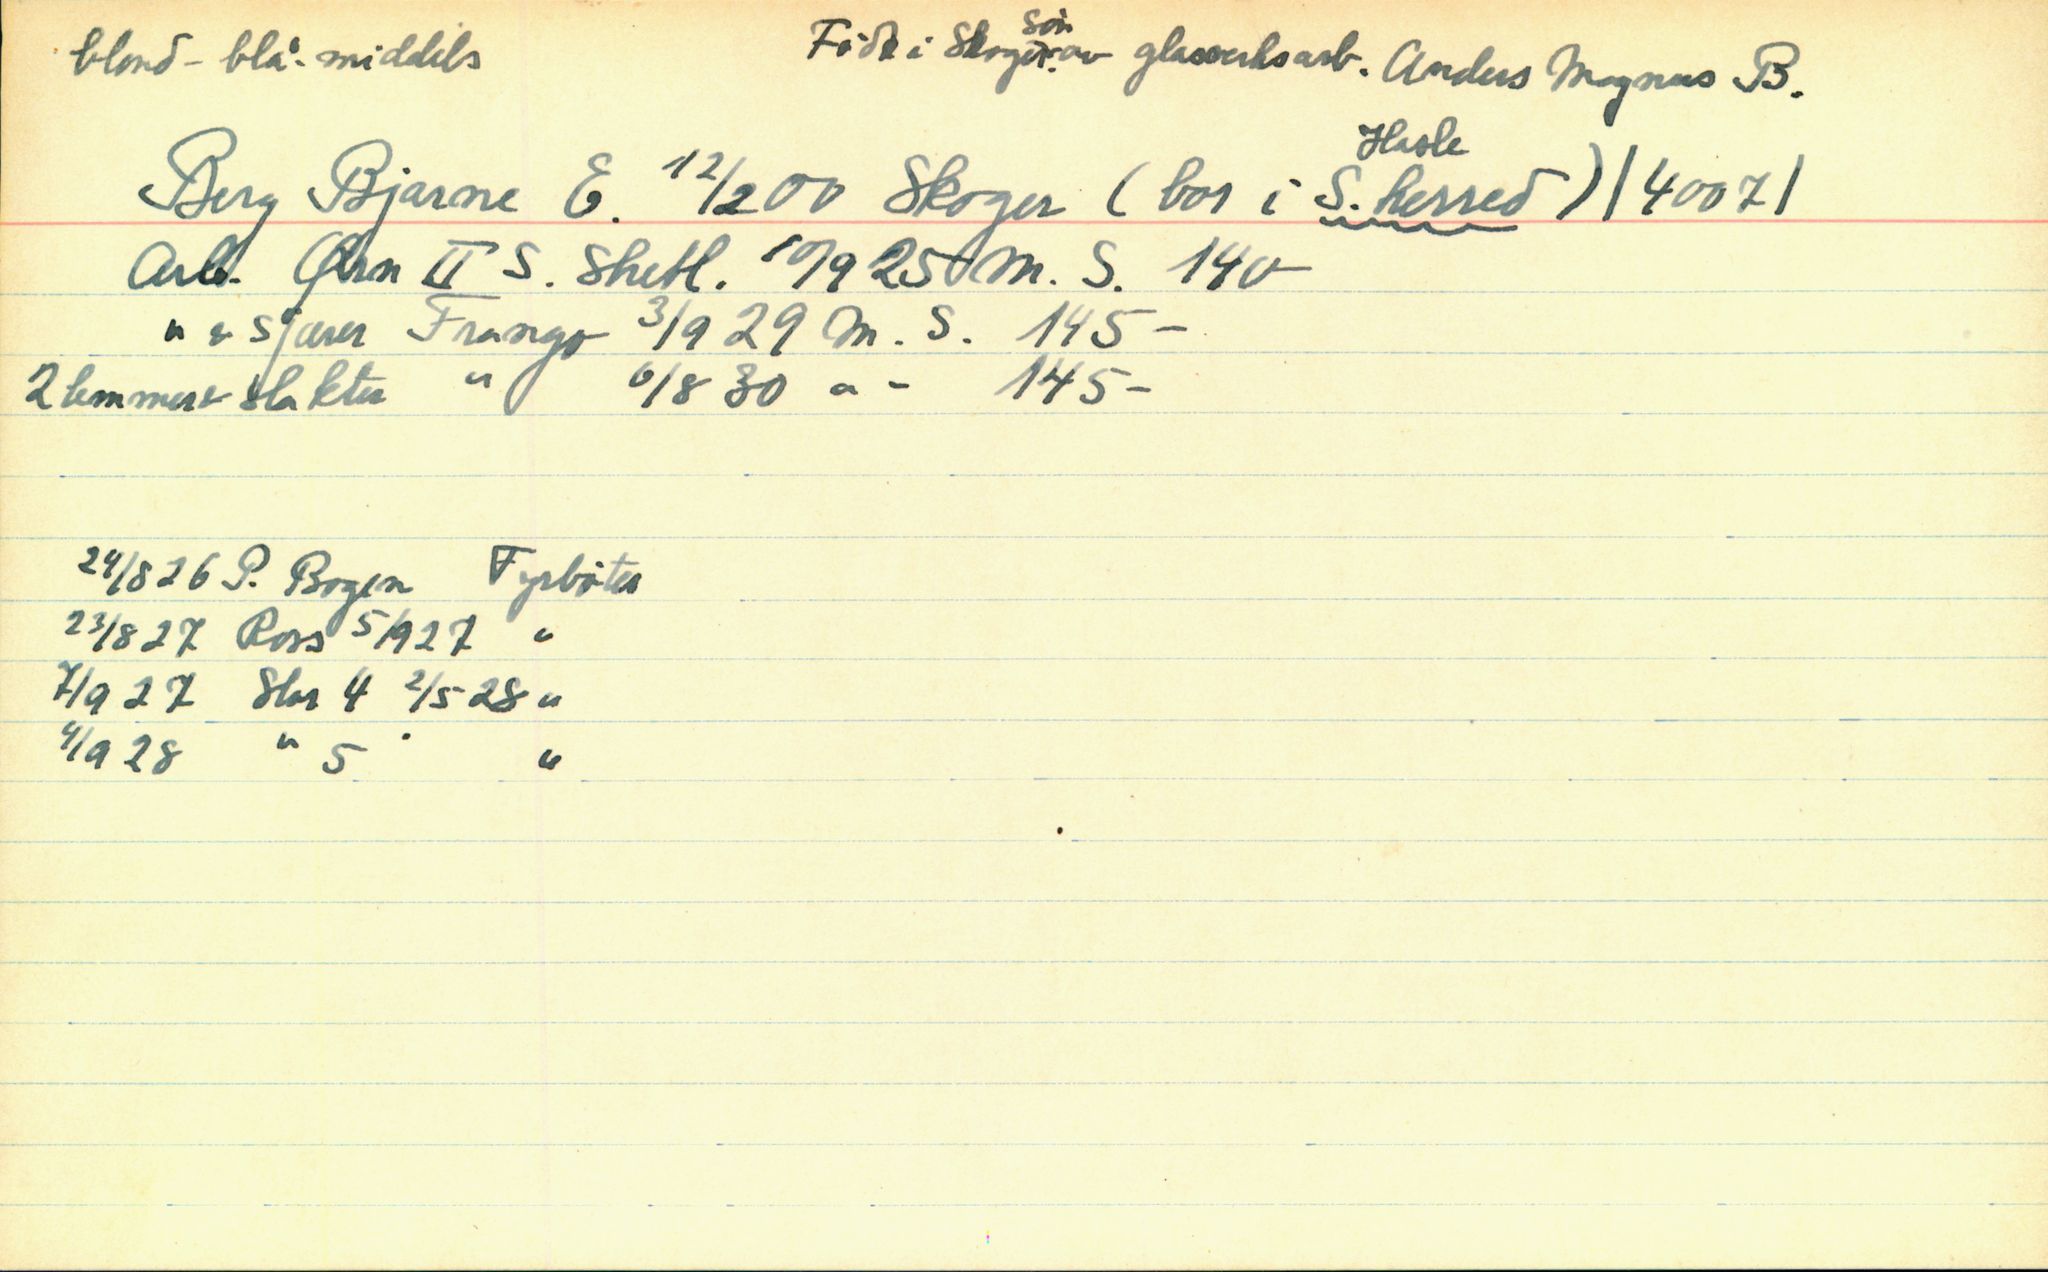 blond - blå - middels
Född i Skoger. søn av glassverksarb. Anders Magnus B.
Berg Bjarne E. 12/2 00 Skoger (bor i S. herred) |40071
Hasle
Arb. Ørn II S. Shetl. 10/9 25 M. S. 140-
" & Sjærer Frango 3/9 29 M. S. 145-
2 lemmer & slakter " 6/8 30 " - 145-
24/8 26 P. Bogen Fyrbøter
23/8 27 Ross 5/9 27 "
7/9 27 Star 4 2/5 28 "
4/9 28 " 5 "